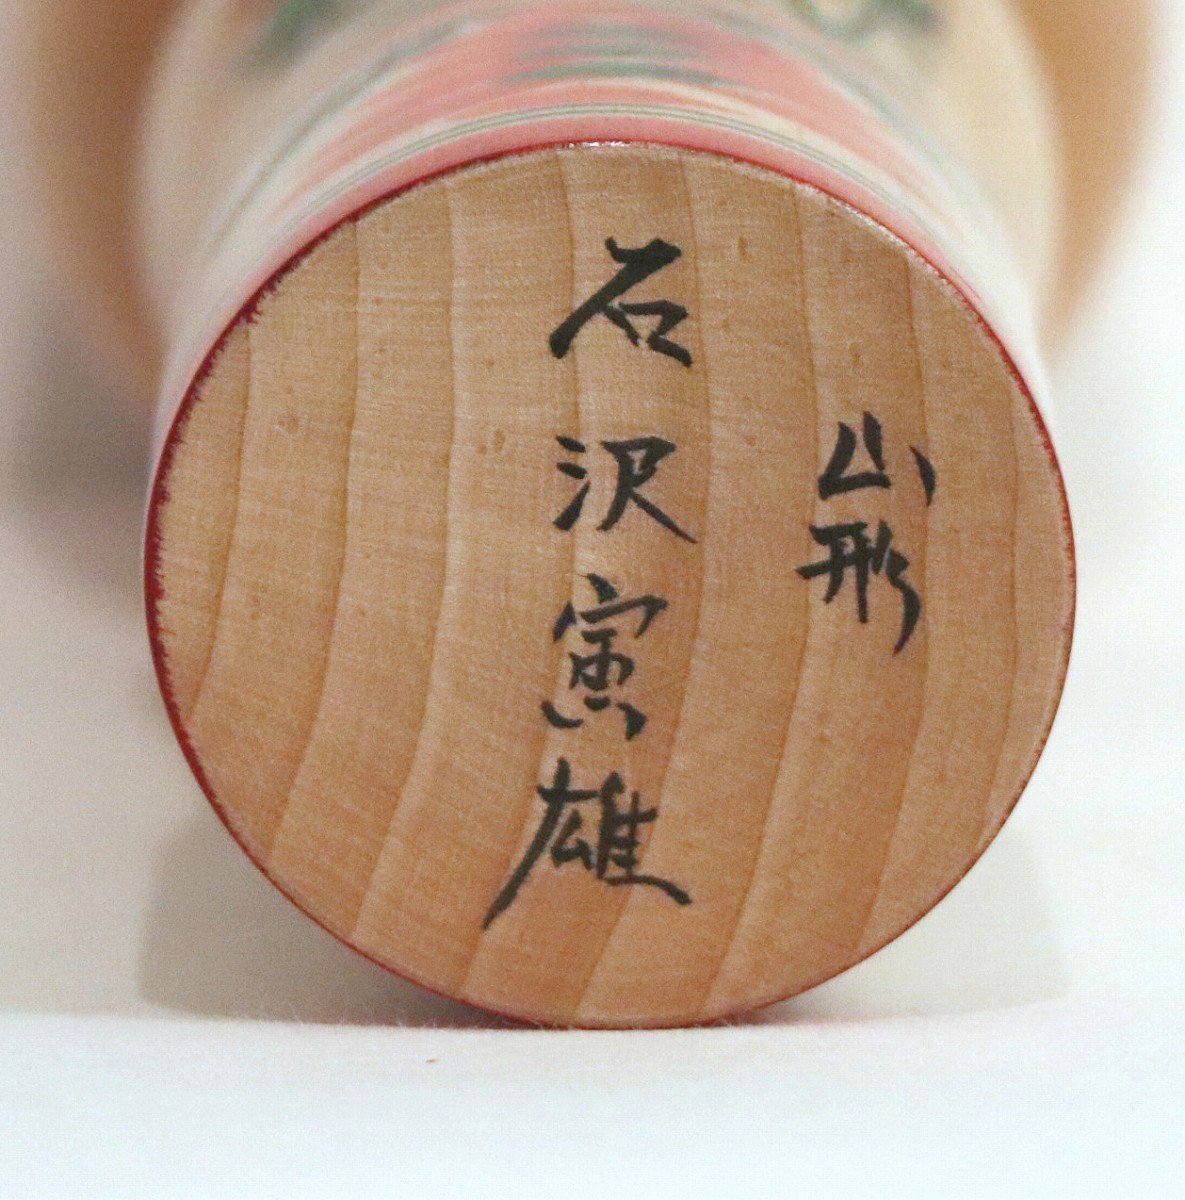 山形
石沢寅雄